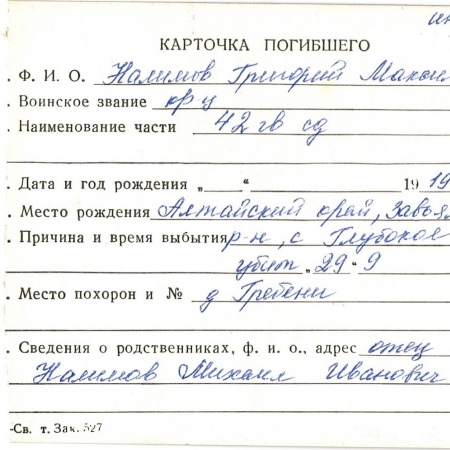 КАРТОЧКА ПОГИБШЕГО
. Ф. И. О. Налимов Григорий Макси
. Воинское звание кр-ц
. Наименование части 42 гв сд
. Дата и год рождения „ “ 1919
. Место рождения Алтайский край, Завья
. Причина и время выбытия р-н, с Глубокое
убит „29-9
. Место похорон и № д Гребени
. Сведения о родственниках, ф. и. о., адрес отец
Налимов Михаил Иванович
-Св. т. Зак. 527